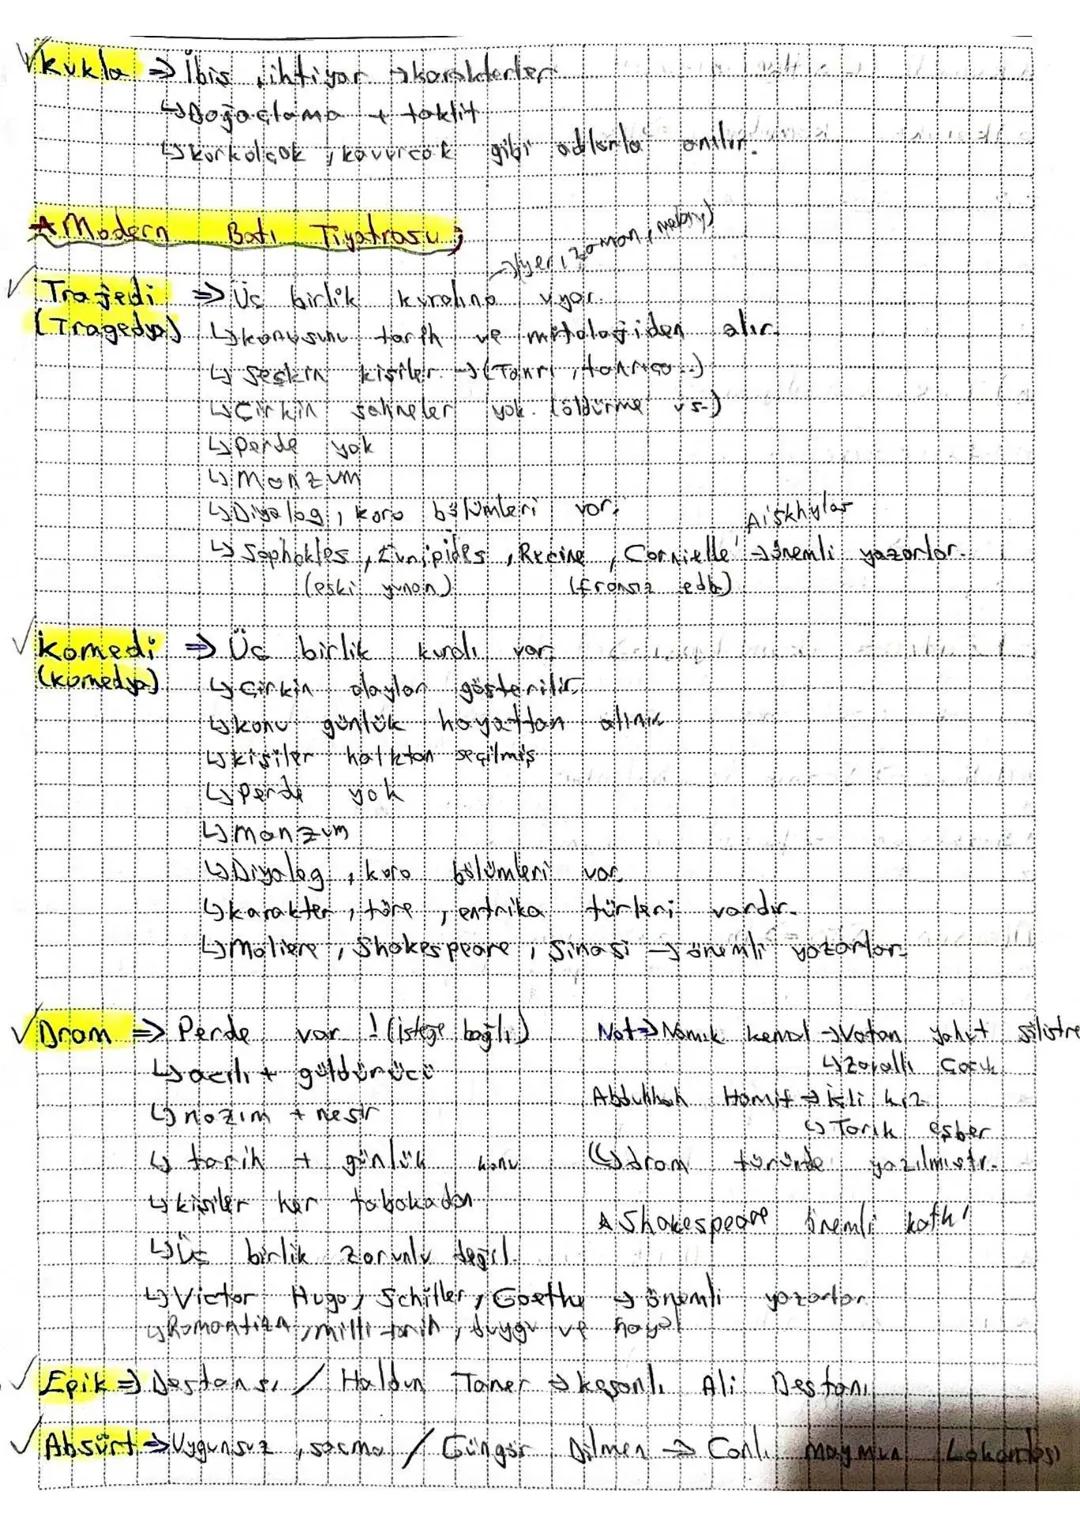 Kukla ⇒ İbiş, ihtiyar → karakterler
↳ Doğaçlama + taklit
↳ korkolçak, kavurcak gibi adlarla anılır.
★ Modern Batı Tiyatrosu;
→ (yer, zaman, mekan)
Trajedi ⇒ Üç birlik kuralına uyar.
(Tragedya) ↳ konusunu tarih ve mitolojiden alır.
↳ Seçkin kişiler → (Tanrı, tanrıça..)
↳ Çirkin sahneler yok. (öldürme vs.)
↳ Perde yok
↳ Manzum
↳ Diyalog, koro bölümleri var.
Aiskhylos
↳ Sophokles, Euripides, Racine, Cornielle → önemli yazarlar.
(eski yunan) (fransız edb)
Komedi ⇒ Üç birlik kuralı var.
(komedya) ↳ Çirkin olaylar gösterilir.
↳ konu günlük hayattan alınır
↳ kişiler halktan seçilmiş
↳ Perde yok
↳ manzum
↳ Diyalog, koro bölümleri var.
↳ karakter, töre, entrika türleri vardır.
↳ Moliere, Shakespeare, Şinasi → önemli yazarlar.
Dram ⇒ Perde var ! (isteğe bağlı)
↳ acılı + güldürücü
↳ nazım + nesir
↳ tarih + günlük konu
↳ kişiler her tabakadan
↳ Üç birlik zorunlu değil.
↳ Victor Hugo, Schiller, Goethe → önemli yazarlar
↳ Romantizm, milli tarih, duygu ve hayal
Not ⇒ Namık kemal → Vatan yahut silistre
↳ Zavallı Çocuk
Abdülhak Hamit → İçli kız
↳ Tarık eşber
↳ dram türünde yazılmıştır.
★ Shakespeare önemli katkı
Epik ⇒ Destansı / Haldun Taner → keşanlı Ali Destanı
Absürt ⇒ Uygunsuz, saçma / Güngör Dilmen → Canlı maymun Lokantası